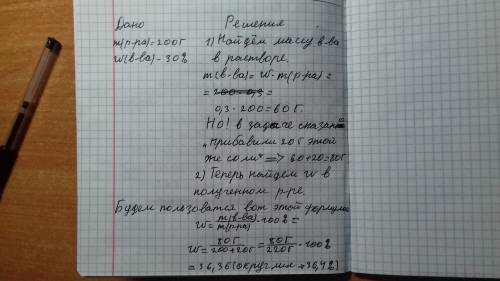 Дано
Решения
m(р-ра)=200г
w(в-ва)-30%
1) Найдём массу в-ва
в растворе.
m(в-ва)=w·m(р-ра)=
=200·0,3=
0,3·200=60г.
Но! в задаче сказано
"прибавили 20г этой
же соли" => 60+20=80г
2) Теперь найдем w в
полученном р-ре.
Будем пользоватся вот этой формулой
w=m(в-ва)/m(р-ра)·100%=
w=80г/200+20г=80г/220г·100%
=36,36(округлил =36,4%)